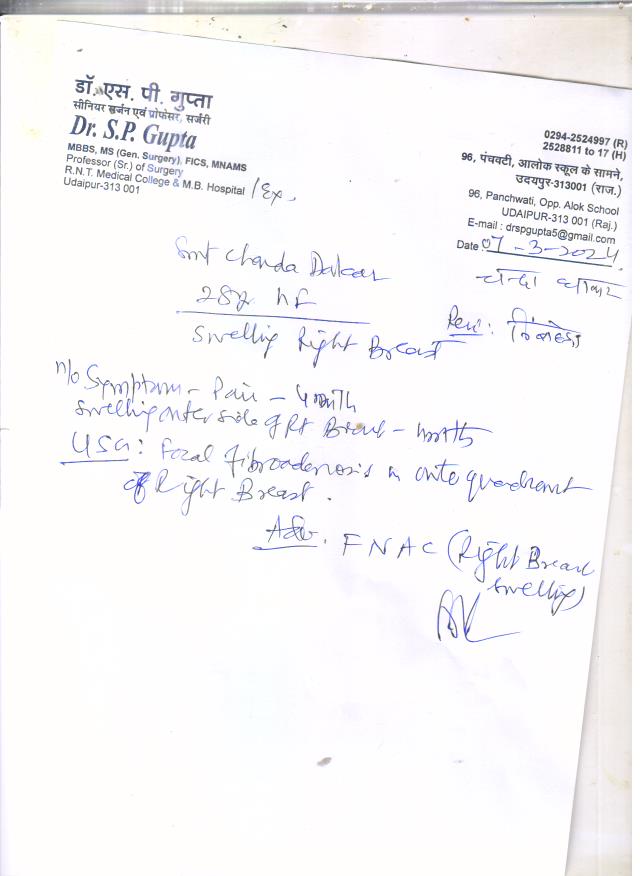 डॉ. एस. पी. गुप्ता
सीनियर सर्जन एवं प्रोफेसर, सर्जरी
Dr. S.P. Gupta
MBBS, MS (Gen. Surgery), FICS, MNAMS
Professor (Sr.) of Surgery
R.N.T. Medical College & M.B. Hospital / Ex.
Udaipur-313 001
0294-2524997 (R)
2528811 to 17 (H)
96, पंचवटी, आलोक स्कूल के सामने,
उदयपुर-313001 (राज.)
96, Panchwati, Opp. Alok School
UDAIPUR-313 001 (Raj.)
E-mail : drspgupta5@gmail.com
Date 07-3-2024
Smt Chanda
28y
Swelling Right Breast
Symptom - Pain -
Swelling outer side of Rt Breast -
USG : Focal Fibroadenosis in oute quadrant
of Right Breast.
Adv. FNAC (Right Breast
Swelling)